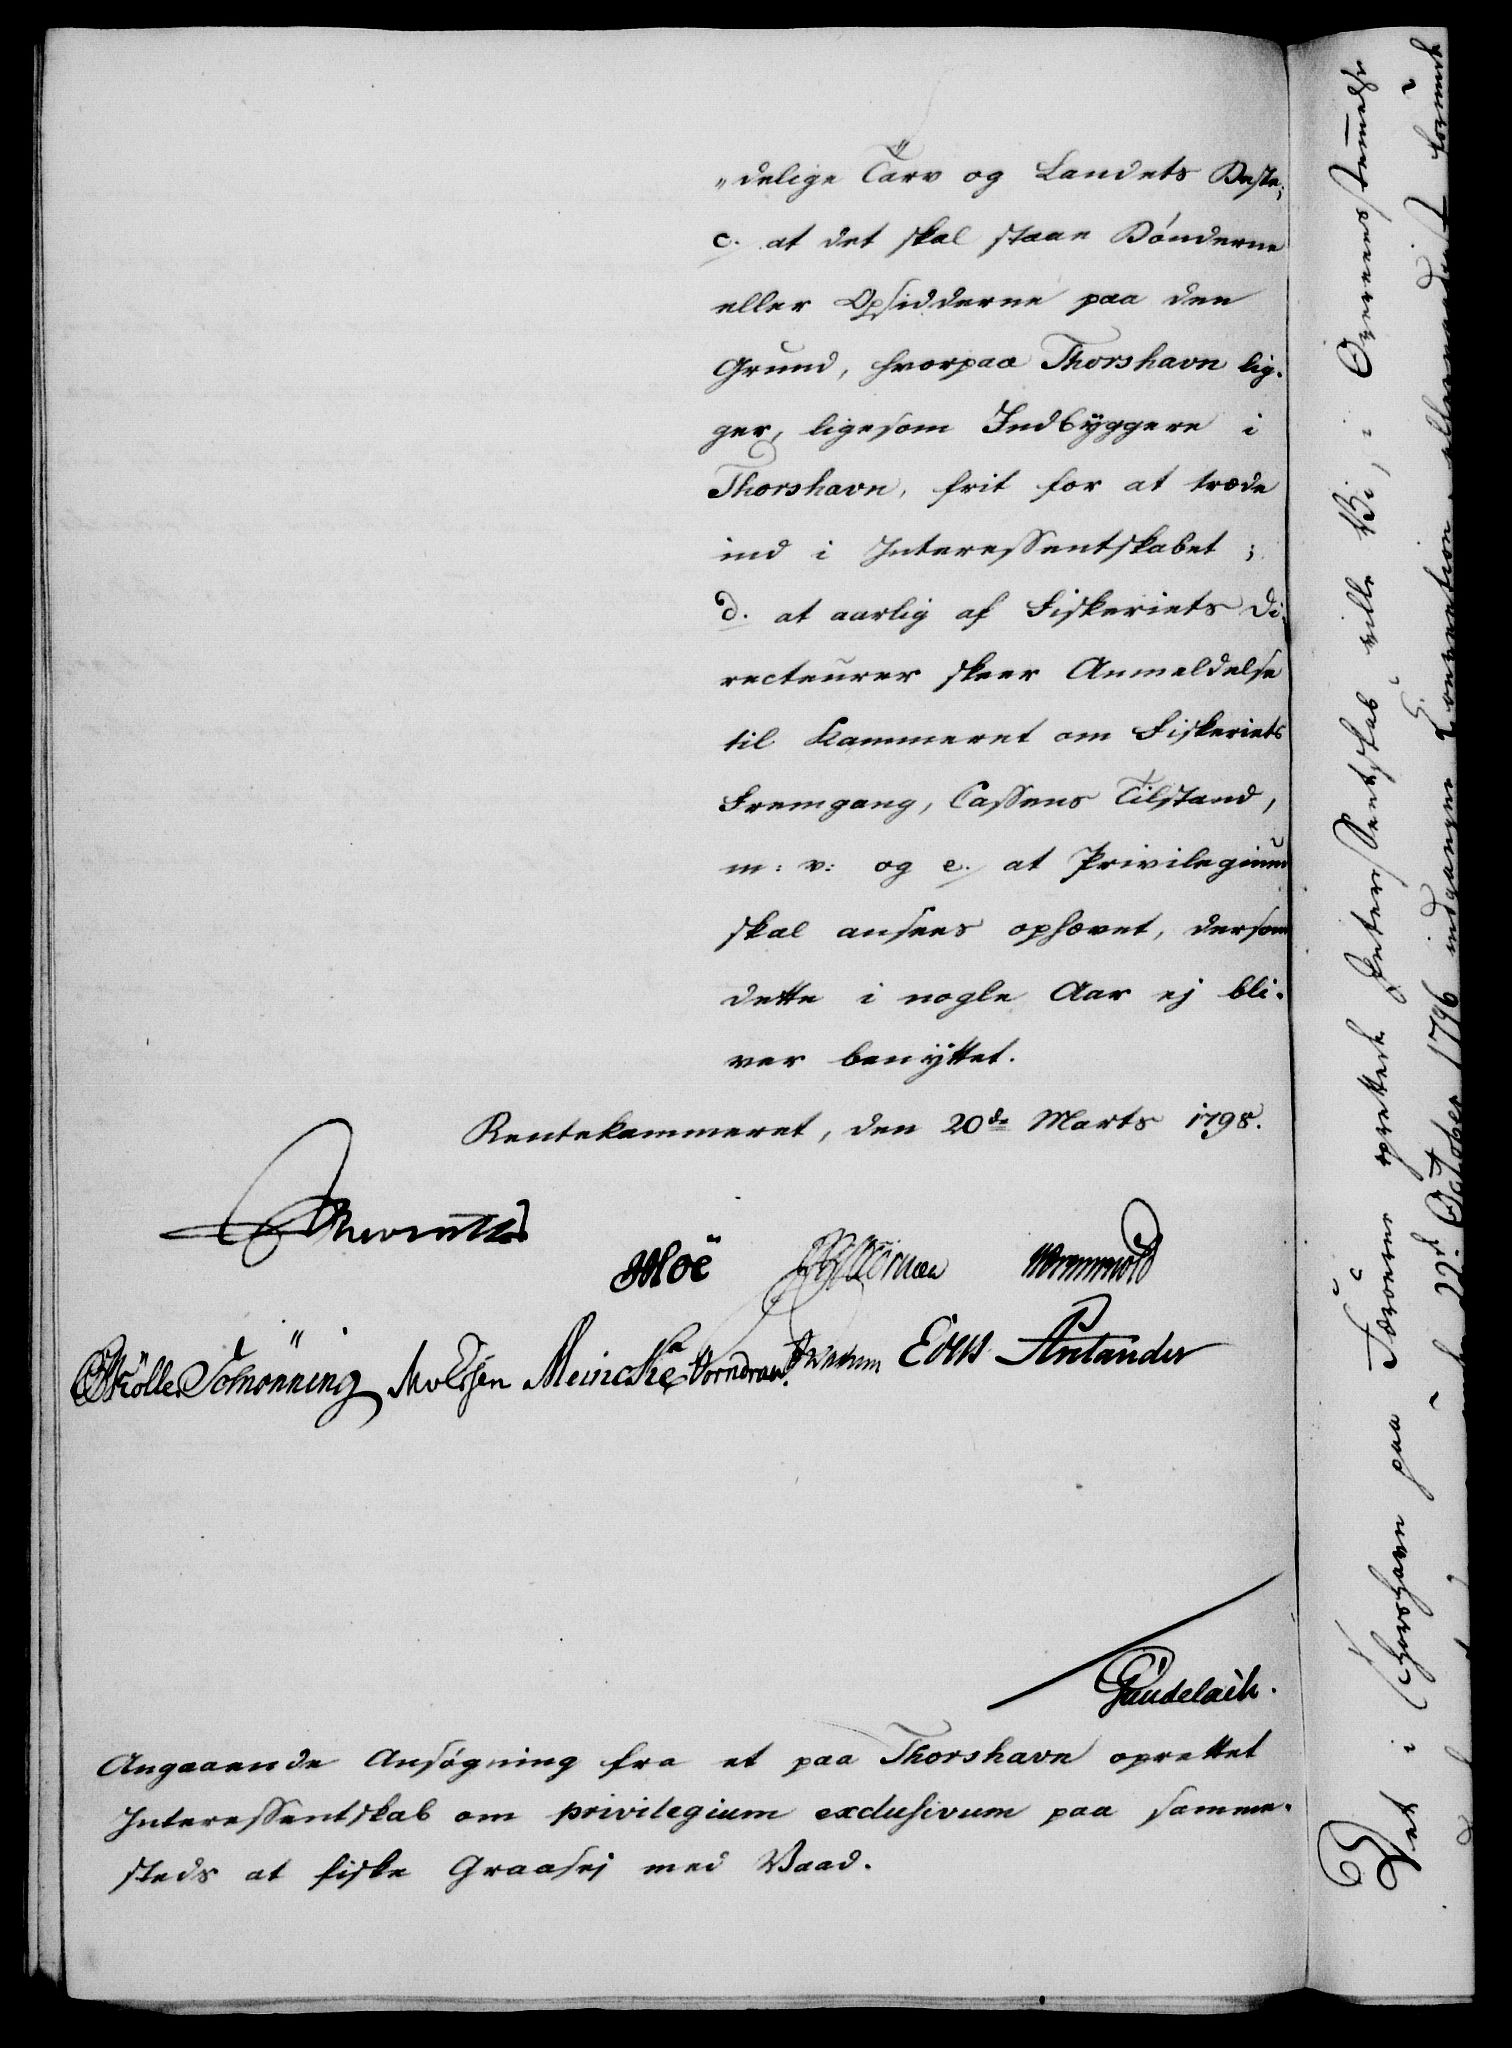 „delige Tarv og Landets Beste;
c. at det skal staae Bønderne
eller Opsidderne paa den
Grund, hvorpaa Thorshavn lig-
ger, ligesom Indbyggere i
Thorshavn, frit for at træde
ind i Interessentskabet;
d. at aarlig af Fiskeriets Di-
recteurer skeer Anmeldelse
til Kammeret om Fiskeriets
Fremgang, Cassens Tilstand,
m: v: og e. at Privilegium
skal ansees ophævet, dersom
dette i nogle Aar ej bli-
ver benyttet.
Rentekammeret, den 20de Marts 1798.
Reventlow
Moë Wormskiold
Schönning Meincke Vorndran Eeus Antander
Gündelach.
Angaaende Ansøgning fra et paa Thorshavn oprettet
Interessentskab om privilegium exclusivum paa samme-
steds at fiske Graasej med Vaad.
Det i Thorshavn paa Færøerne oprettede Interessentskab ville Vi, i Overeensstemmelse
22de October 1796 indgangne allerunderdanigst